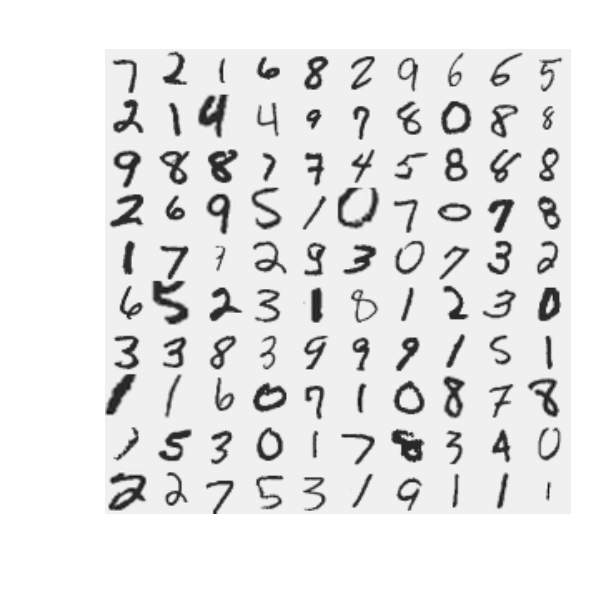 7 2 1 6 8 2 9 6 6 5
2 1 4 4 9 7 8 0 8 8
9 8 8 7 7 4 5 8 8 8
2 6 9 5 1 0 7 0 7 8
1 7 7 2 9 3 0 7 3 2
6 5 2 3 1 8 1 2 3 0
3 3 8 3 9 9 9 1 5 1
1 1 6 0 7 1 0 8 7 8
5 3 0 1 7 8 3 4 0
2 2 7 5 3 1 9 1 1 1